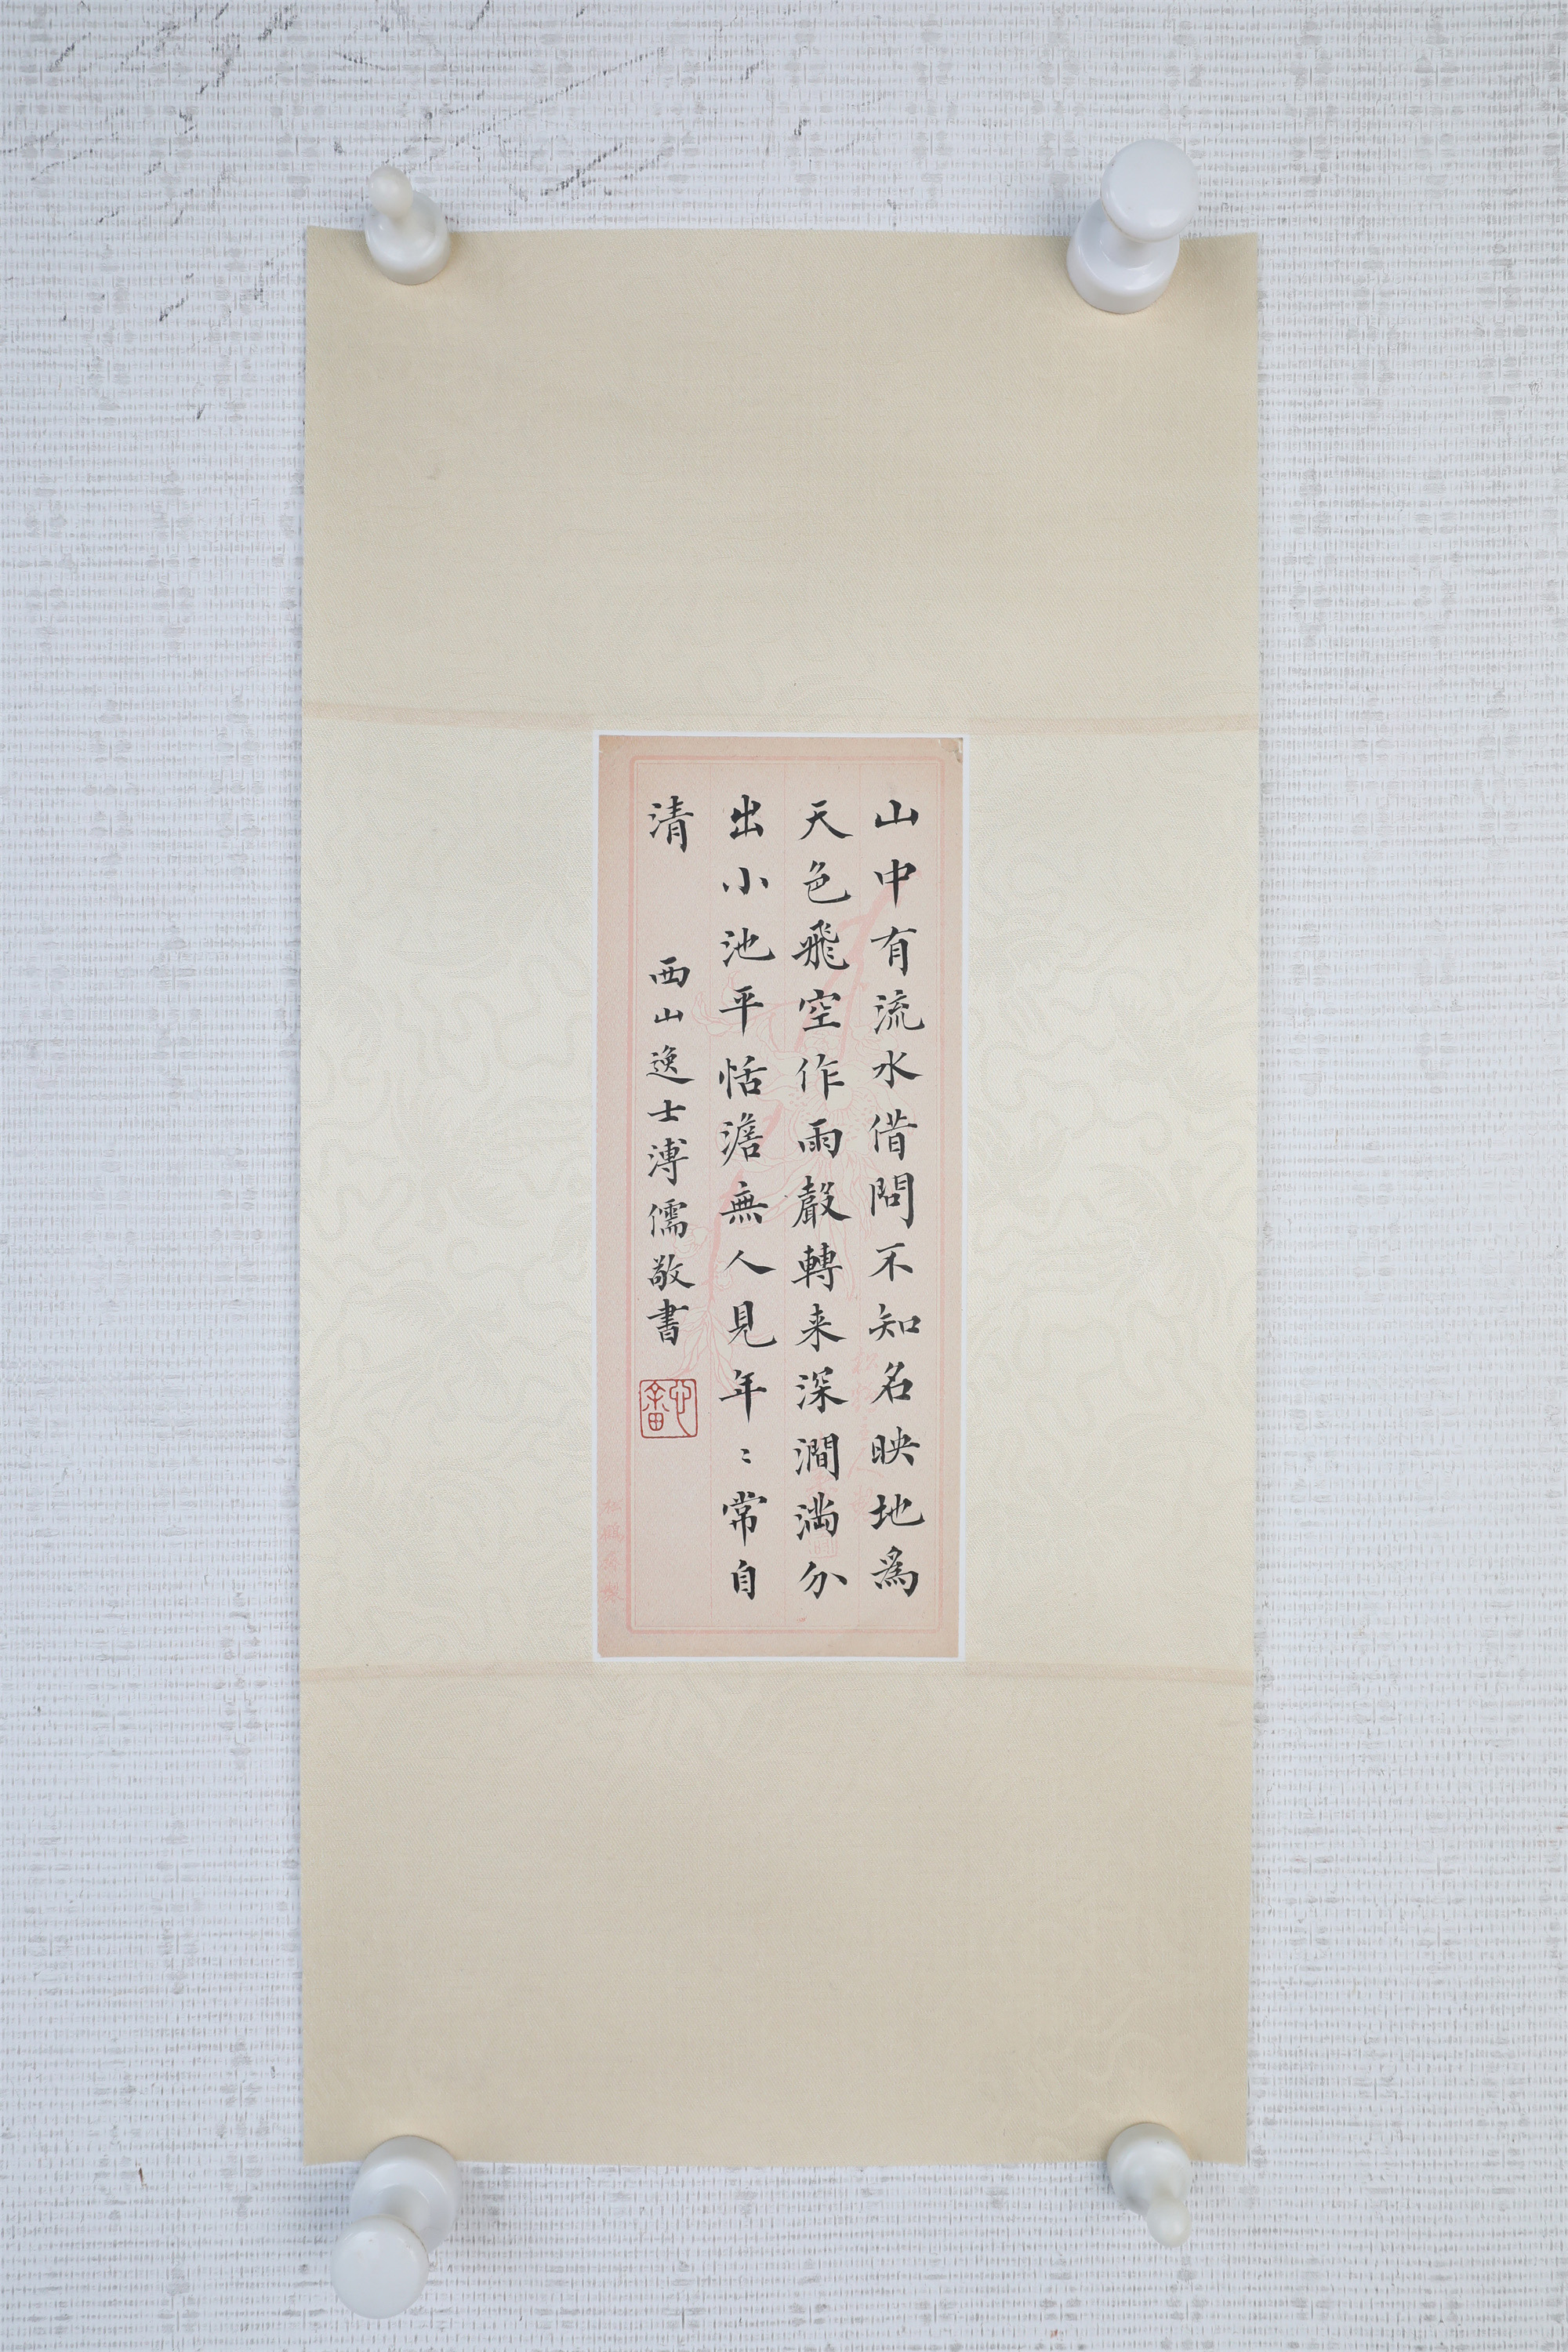 山中有流水借問不知名映地為
天色飛空作雨聲轉来深澗满分
出小池平恬澹無人見年〻常自
清
西山逸士溥儒敬書
松鶴齋製